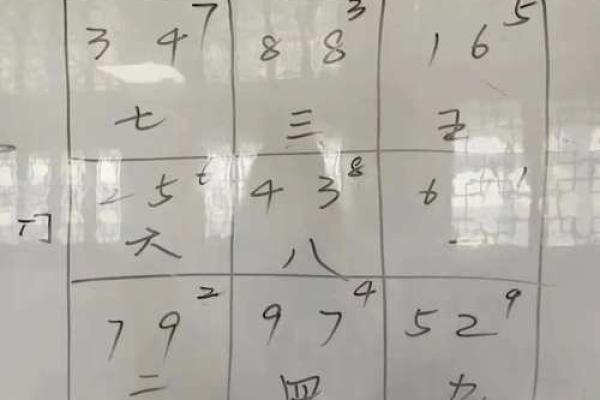 3 4 7 8 8 3 1 6 5
七 三 五
2 5 6 4 3 8 6 1
门 六 八 一
7 9 2 9 7 4 5 2 9
二 四 九